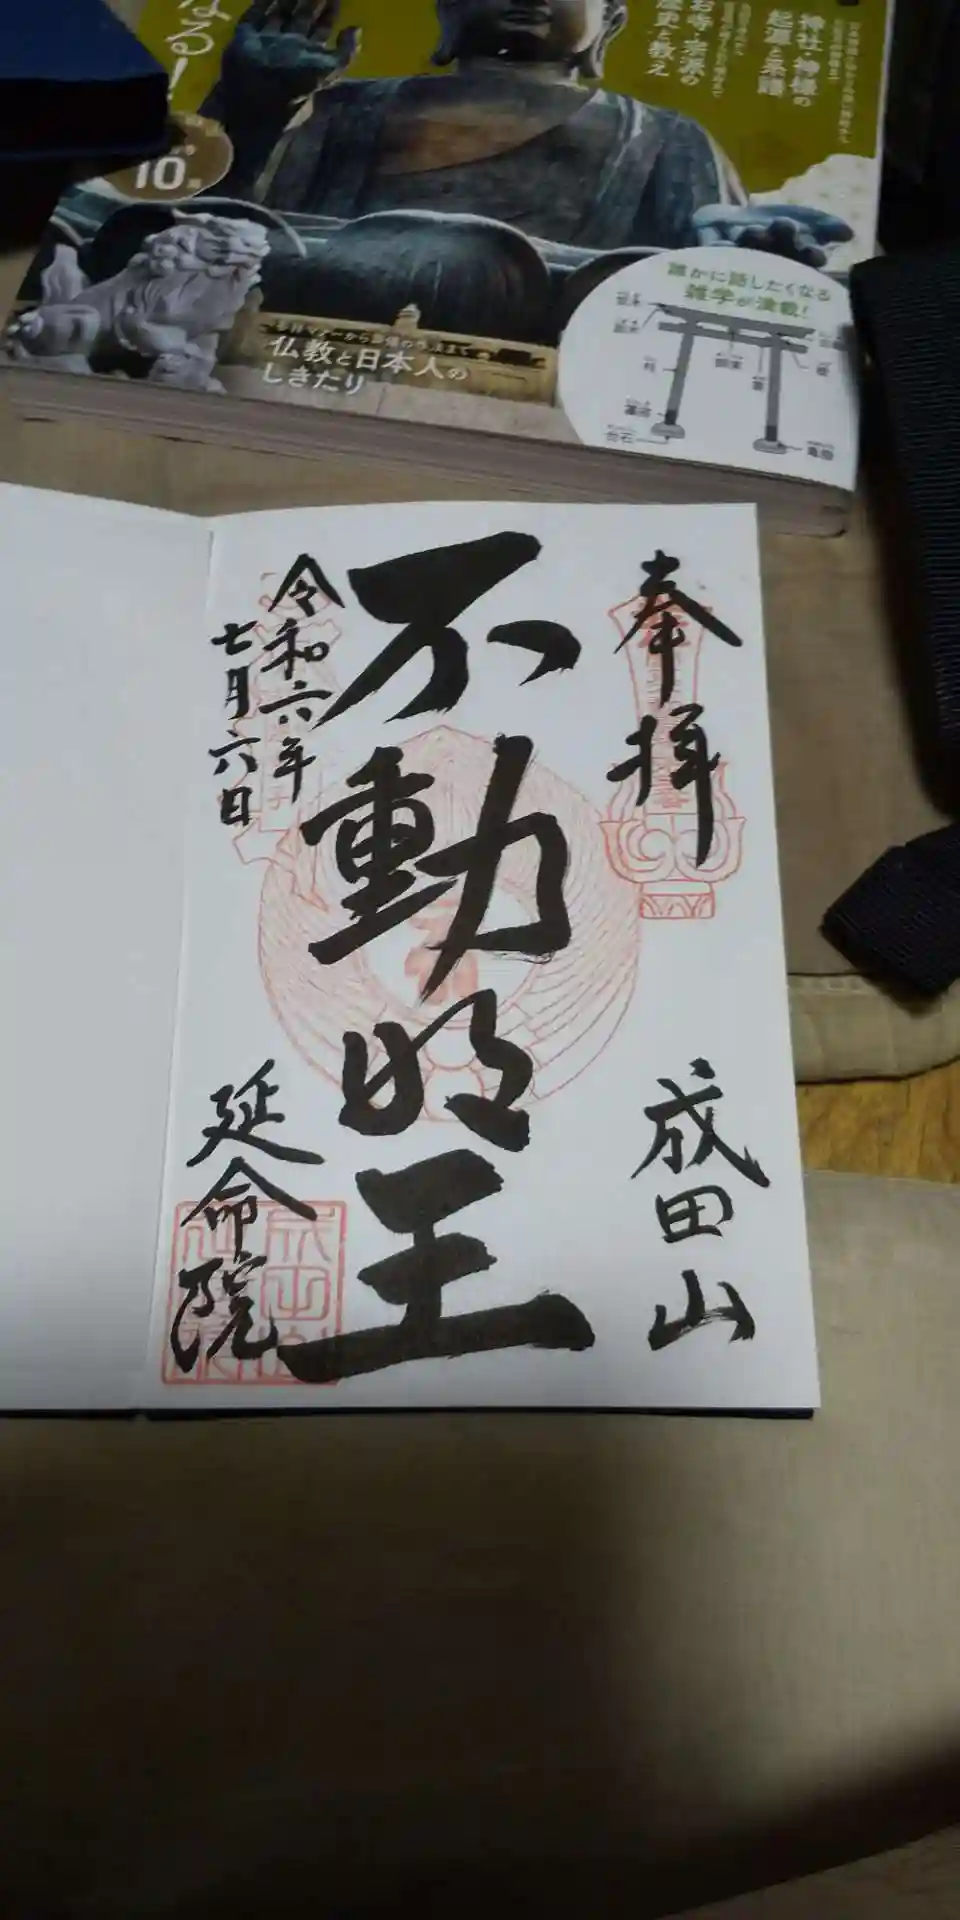 なる!
神社・神様の
起源と系譜
お寺・宗派の
歴史と教え
10
誰かに話したくなる
雑学が満載!
仏教と日本人の
しきたり
柱
台石
奉拝
成田山
不動明王
令和六年
七月六日
延命院